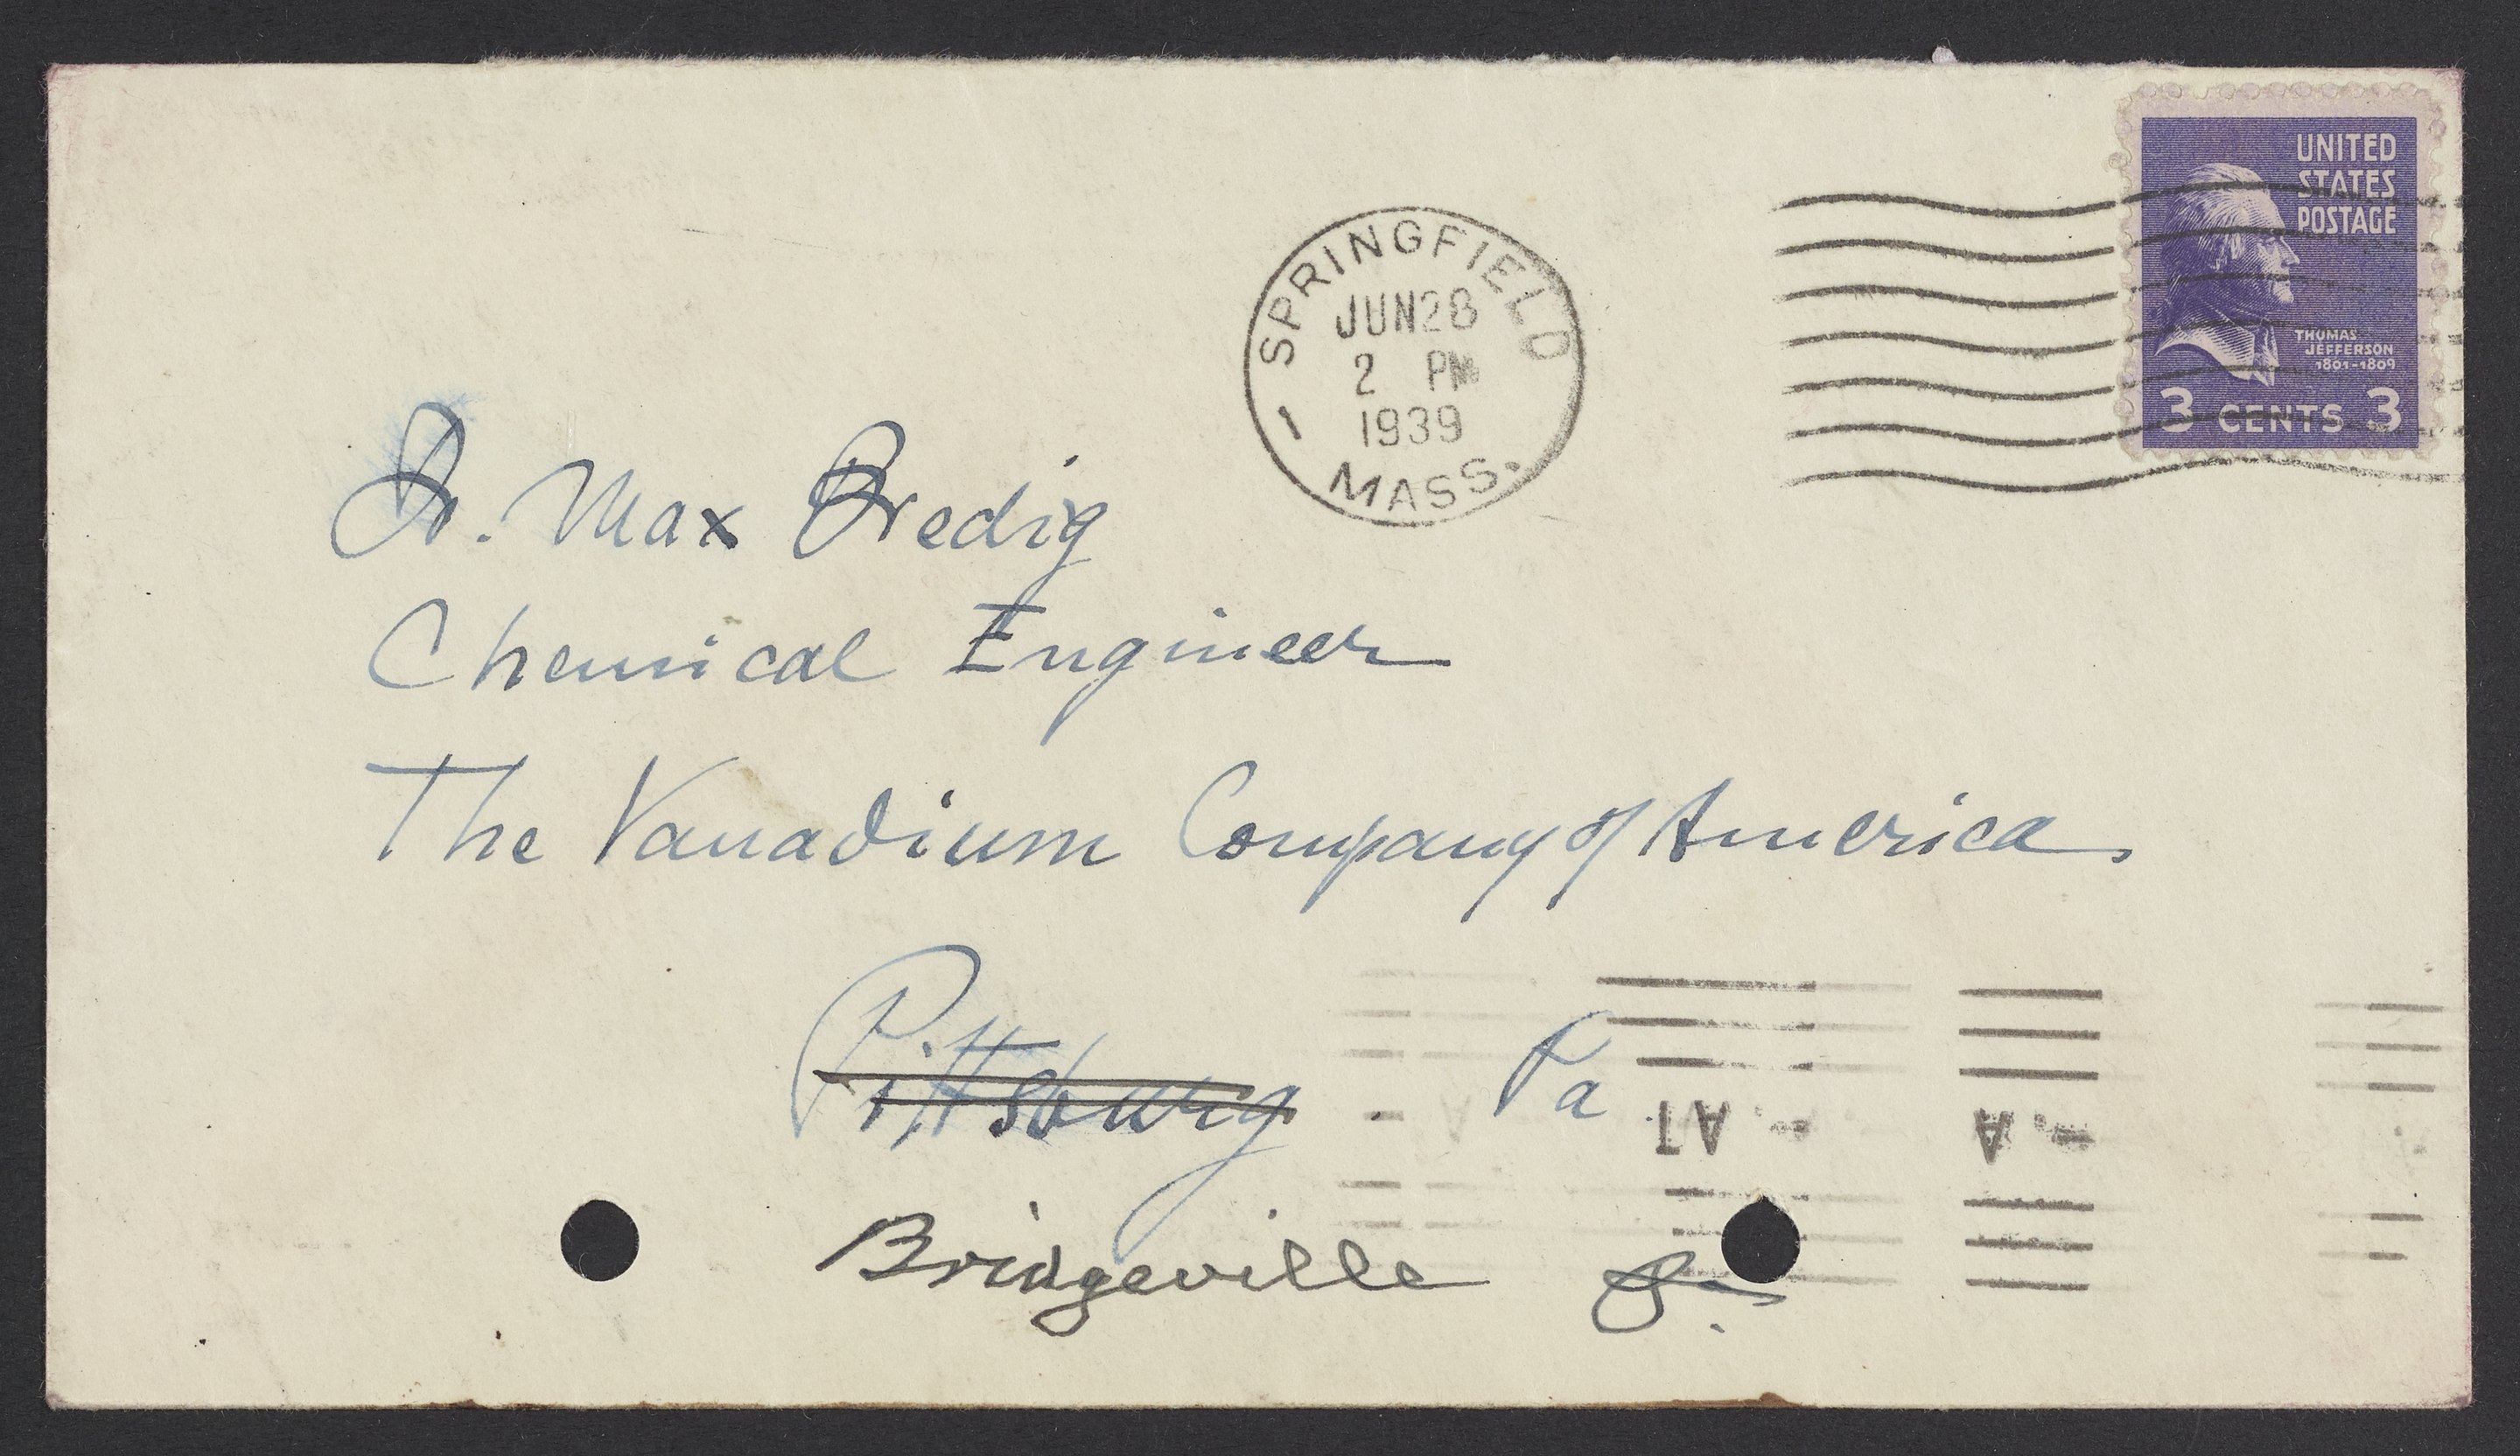 UNITED
STATES
POSTAGE
THOMAS
JEFFERSON
1801-1809
3 CENTS 3
SPRINGFIELD
JUN 28
2 PM
1939
1
MASS.
Dr. Max Bredig
Chemical Engineer
The Vanadium Company of America
Pittsburg Pa
Bridgeville